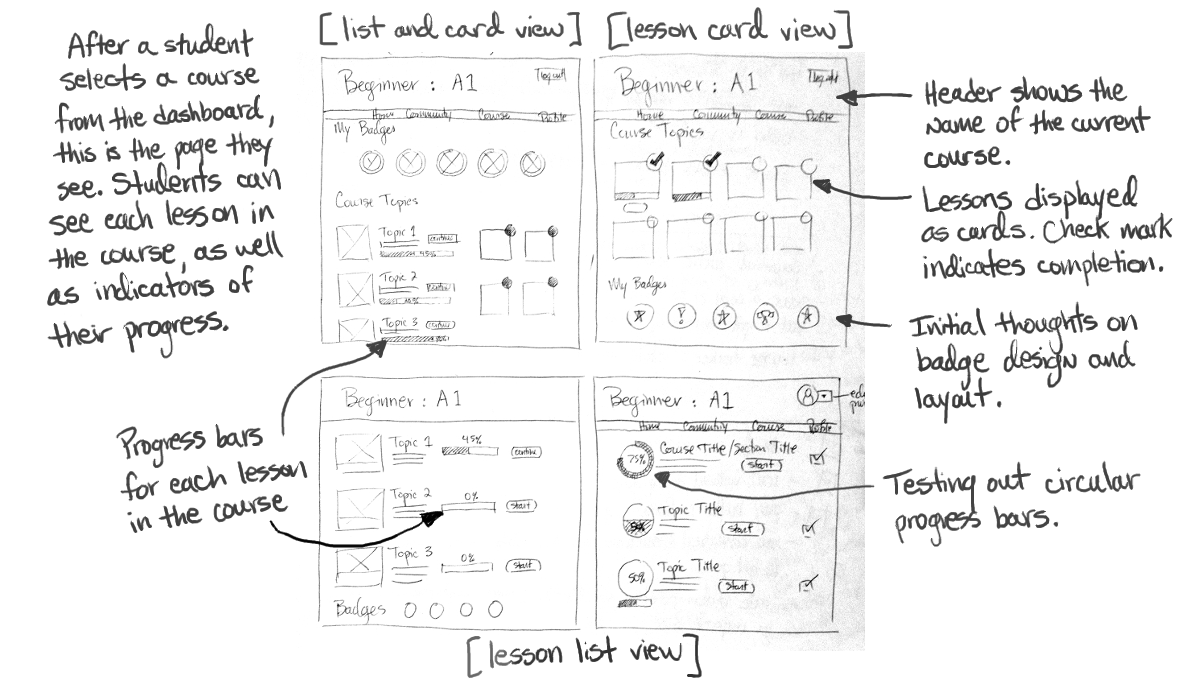 After a student
selects a course
from the dashboard,
this is the page they
see. Students can
see each lesson in
the course, as well
as indicators of
their progress.
[list and card view]
Beginner : A1
logout
Home Community Course Profile
My Badges
Course Topics
Topic 1
continue
45%
Topic 2
Topic 3
continue
[lesson card view]
Beginner : A1
logout
Home Community Course Profile
Course Topics
My Badges
Header shows the
name of the current
course.
Lessons displayed
as cards. Check mark
indicates completion.
Initial thoughts on
badge design and
layout.
Progress bars
for each lesson
in the course
Beginner : A1
Topic 1
45%
continue
Topic 2
0%
start
Topic 3
0%
start
Badges
Beginner : A1
Home Community Course Profile
75%
Course Title/Section Title
start
Topic Title
start
50%
Topic Title
start
Testing out circular
progress bars.
[lesson list view]